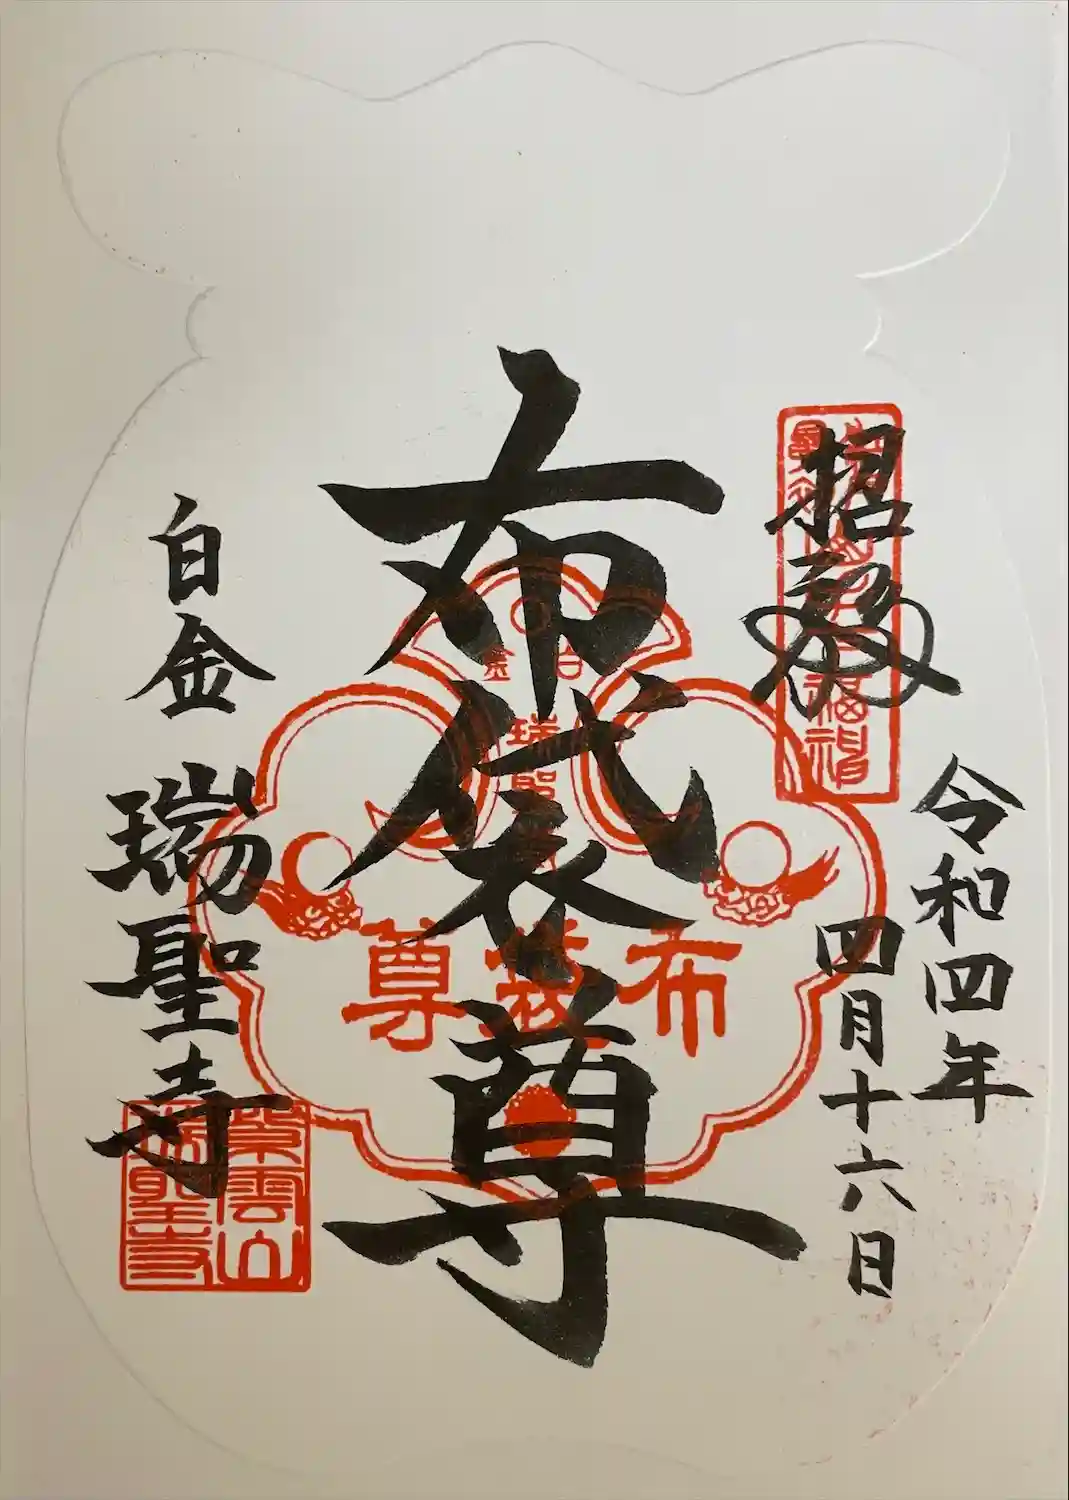 招福
令和四年
四月十六日
布袋尊
白金 瑞聖寺
白金
瑞聖
布袋尊
紫雲山
瑞聖寺